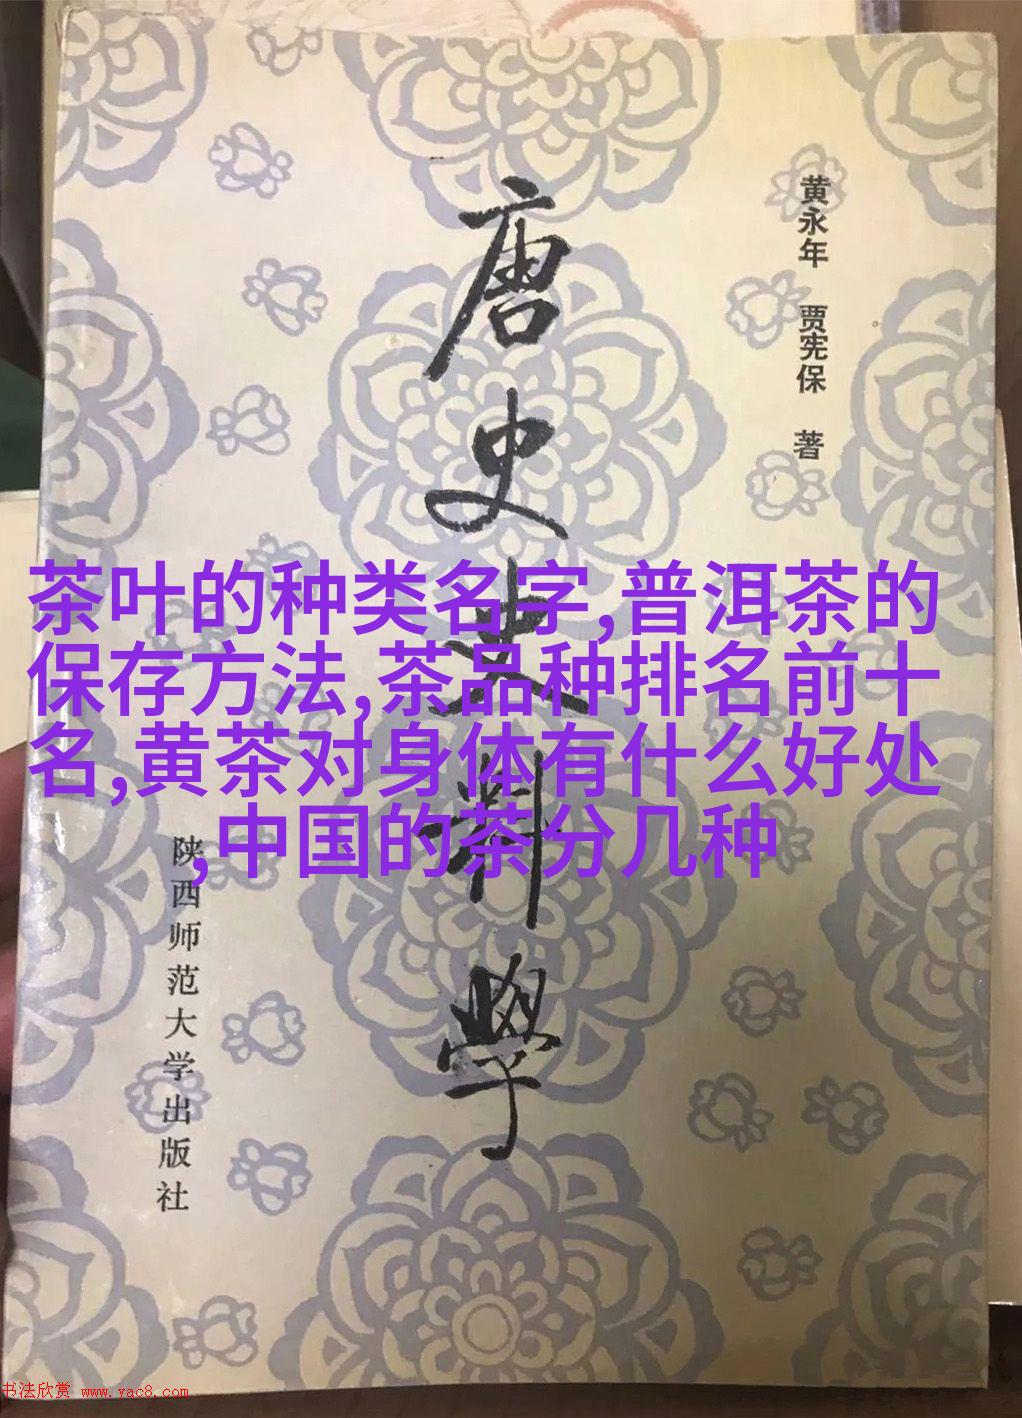 黄永年 贾宪保 著
唐史史料學
陕西师范大学出版社
茶叶的种类名字,普洱茶的
保存方法,茶品种排名前十
名,黄茶对身体有什么好处
,中国的茶分几种
书法欣赏 www.yac8.com